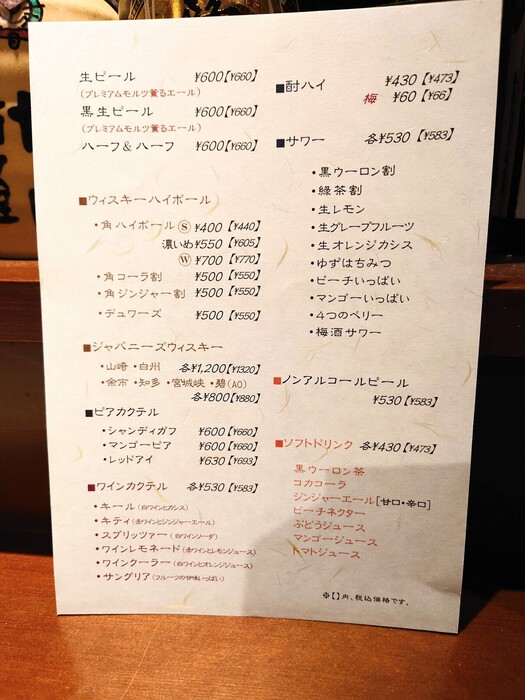 生ビール ¥600【¥660】
(プレミアムモルツ薫るエール)
黒生ビール ¥600【¥660】
(プレミアムモルツ薫るエール)
ハーフ&ハーフ ¥600【¥660】
■ウィスキーハイボール
・角ハイボール Ⓢ ¥400【¥440】
濃いめ¥550【¥605】
Ⓦ ¥700【¥770】
・角コーラ割 ¥500【¥550】
・角ジンジャー割 ¥500【¥550】
・デュワーズ ¥500【¥550】
■ジャパニーズウィスキー
・山崎 ・白州 各¥1,200【¥1320】
・余市 ・知多 ・宮城峡 ・碧(AO)
各¥800【¥880】
■ビアカクテル
・シャンディガフ ¥600【¥660】
・マンゴービア ¥600【¥660】
・レッドアイ ¥630【¥693】
■ワインカクテル 各¥530【¥583】
・キール(白ワインとカシス)
・キティ(赤ワインとジンジャーエール)
・スプリッツァー(白ワインソーダ)
・ワインレモネード(赤ワインとレモンジュース)
・ワインクーラー(白ワインとオレンジジュース)
・サングリア(フルーツの甘味いっぱい)
■酎ハイ ¥430【¥473】
梅 ¥60【¥66】
■サワー 各¥530【¥583】
・黒ウーロン割
・緑茶割
・生レモン
・生グレープフルーツ
・生オレンジカシス
・ゆずはちみつ
・ピーチいっぱい
・マンゴーいっぱい
・4つのベリー
・梅酒サワー
■ノンアルコールビール
¥530【¥583】
■ソフトドリンク 各¥430【¥473】
黒ウーロン茶
コカコーラ
ジンジャーエール[甘口・辛口]
ピーチネクター
ぶどうジュース
マンゴージュース
トマトジュース
※【】内、税込価格です。